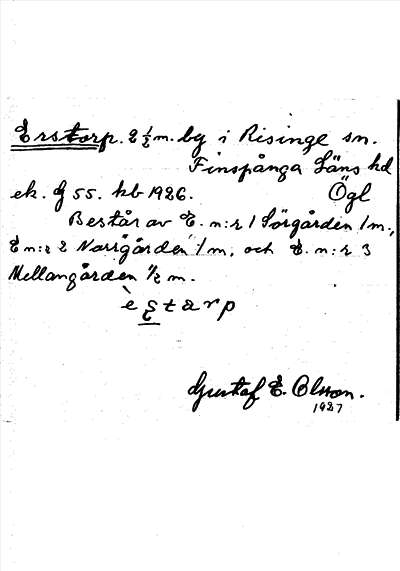 Erstorp. 2 1/2 m. by i Risinge sn.
Finspånga Läns hd
ek. G 55. kb 1926. Ögl
Består av E. n:r 1 Sörgården 1 m.,
E n:r 2 Norrgården 1 m, och E. n:r 3
Mellangården 1/2 m.
Gustaf E. Olsson.
1927